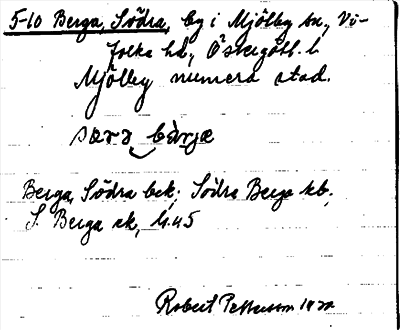 5-10 Berga, Södra, by i Mjölby sn, Vi-
folka hd, Östergötl. l.
Mjölby numera stad.
Berga, Södra bek; Södra Berga kb;
S. Berga ek, 4:45
Robert Pettersson